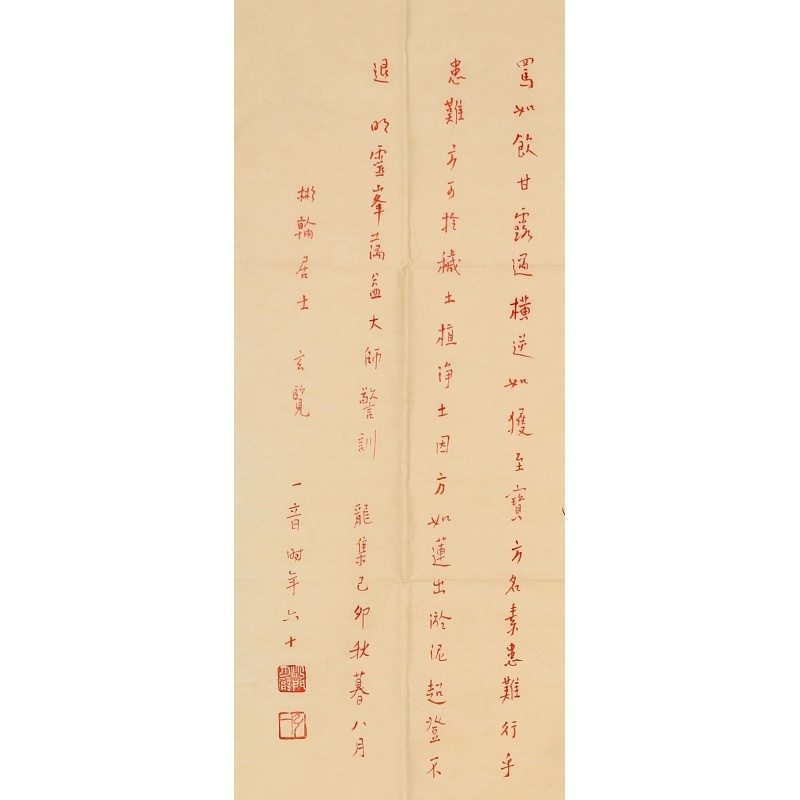 罵如飲甘露遇橫逆如獲至寶方名素患難行乎
患難方可於穢土植淨土因方如蓮出淤泥超登不
退 明靈峯蕅益大師警訓 龍集己卯秋暮八月
彬翰居士 玄覽 一音時年六十